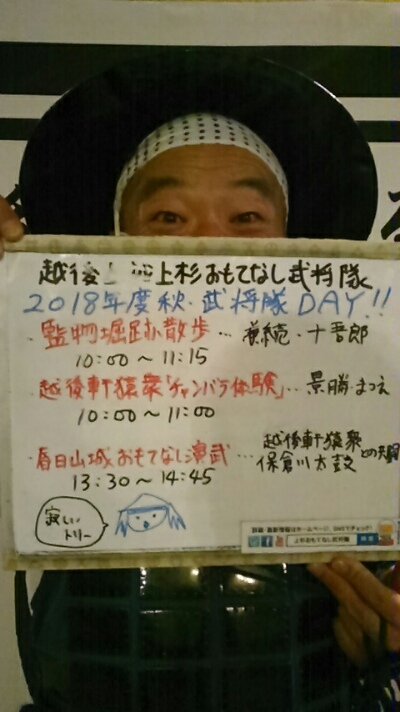 越後上越上杉おもてなし武将隊
2018年度秋・武将隊DAY!!
・監物堀跡散歩…兼続・十吾郎
10:00～11:15
・越後軒猿衆「チャンバラ体験」…景勝・まつえ
10:00～11:00
・春日山城おもてなし演武…越後軒猿衆
保倉川太鼓との
13:30～14:45
寂しい
トリー